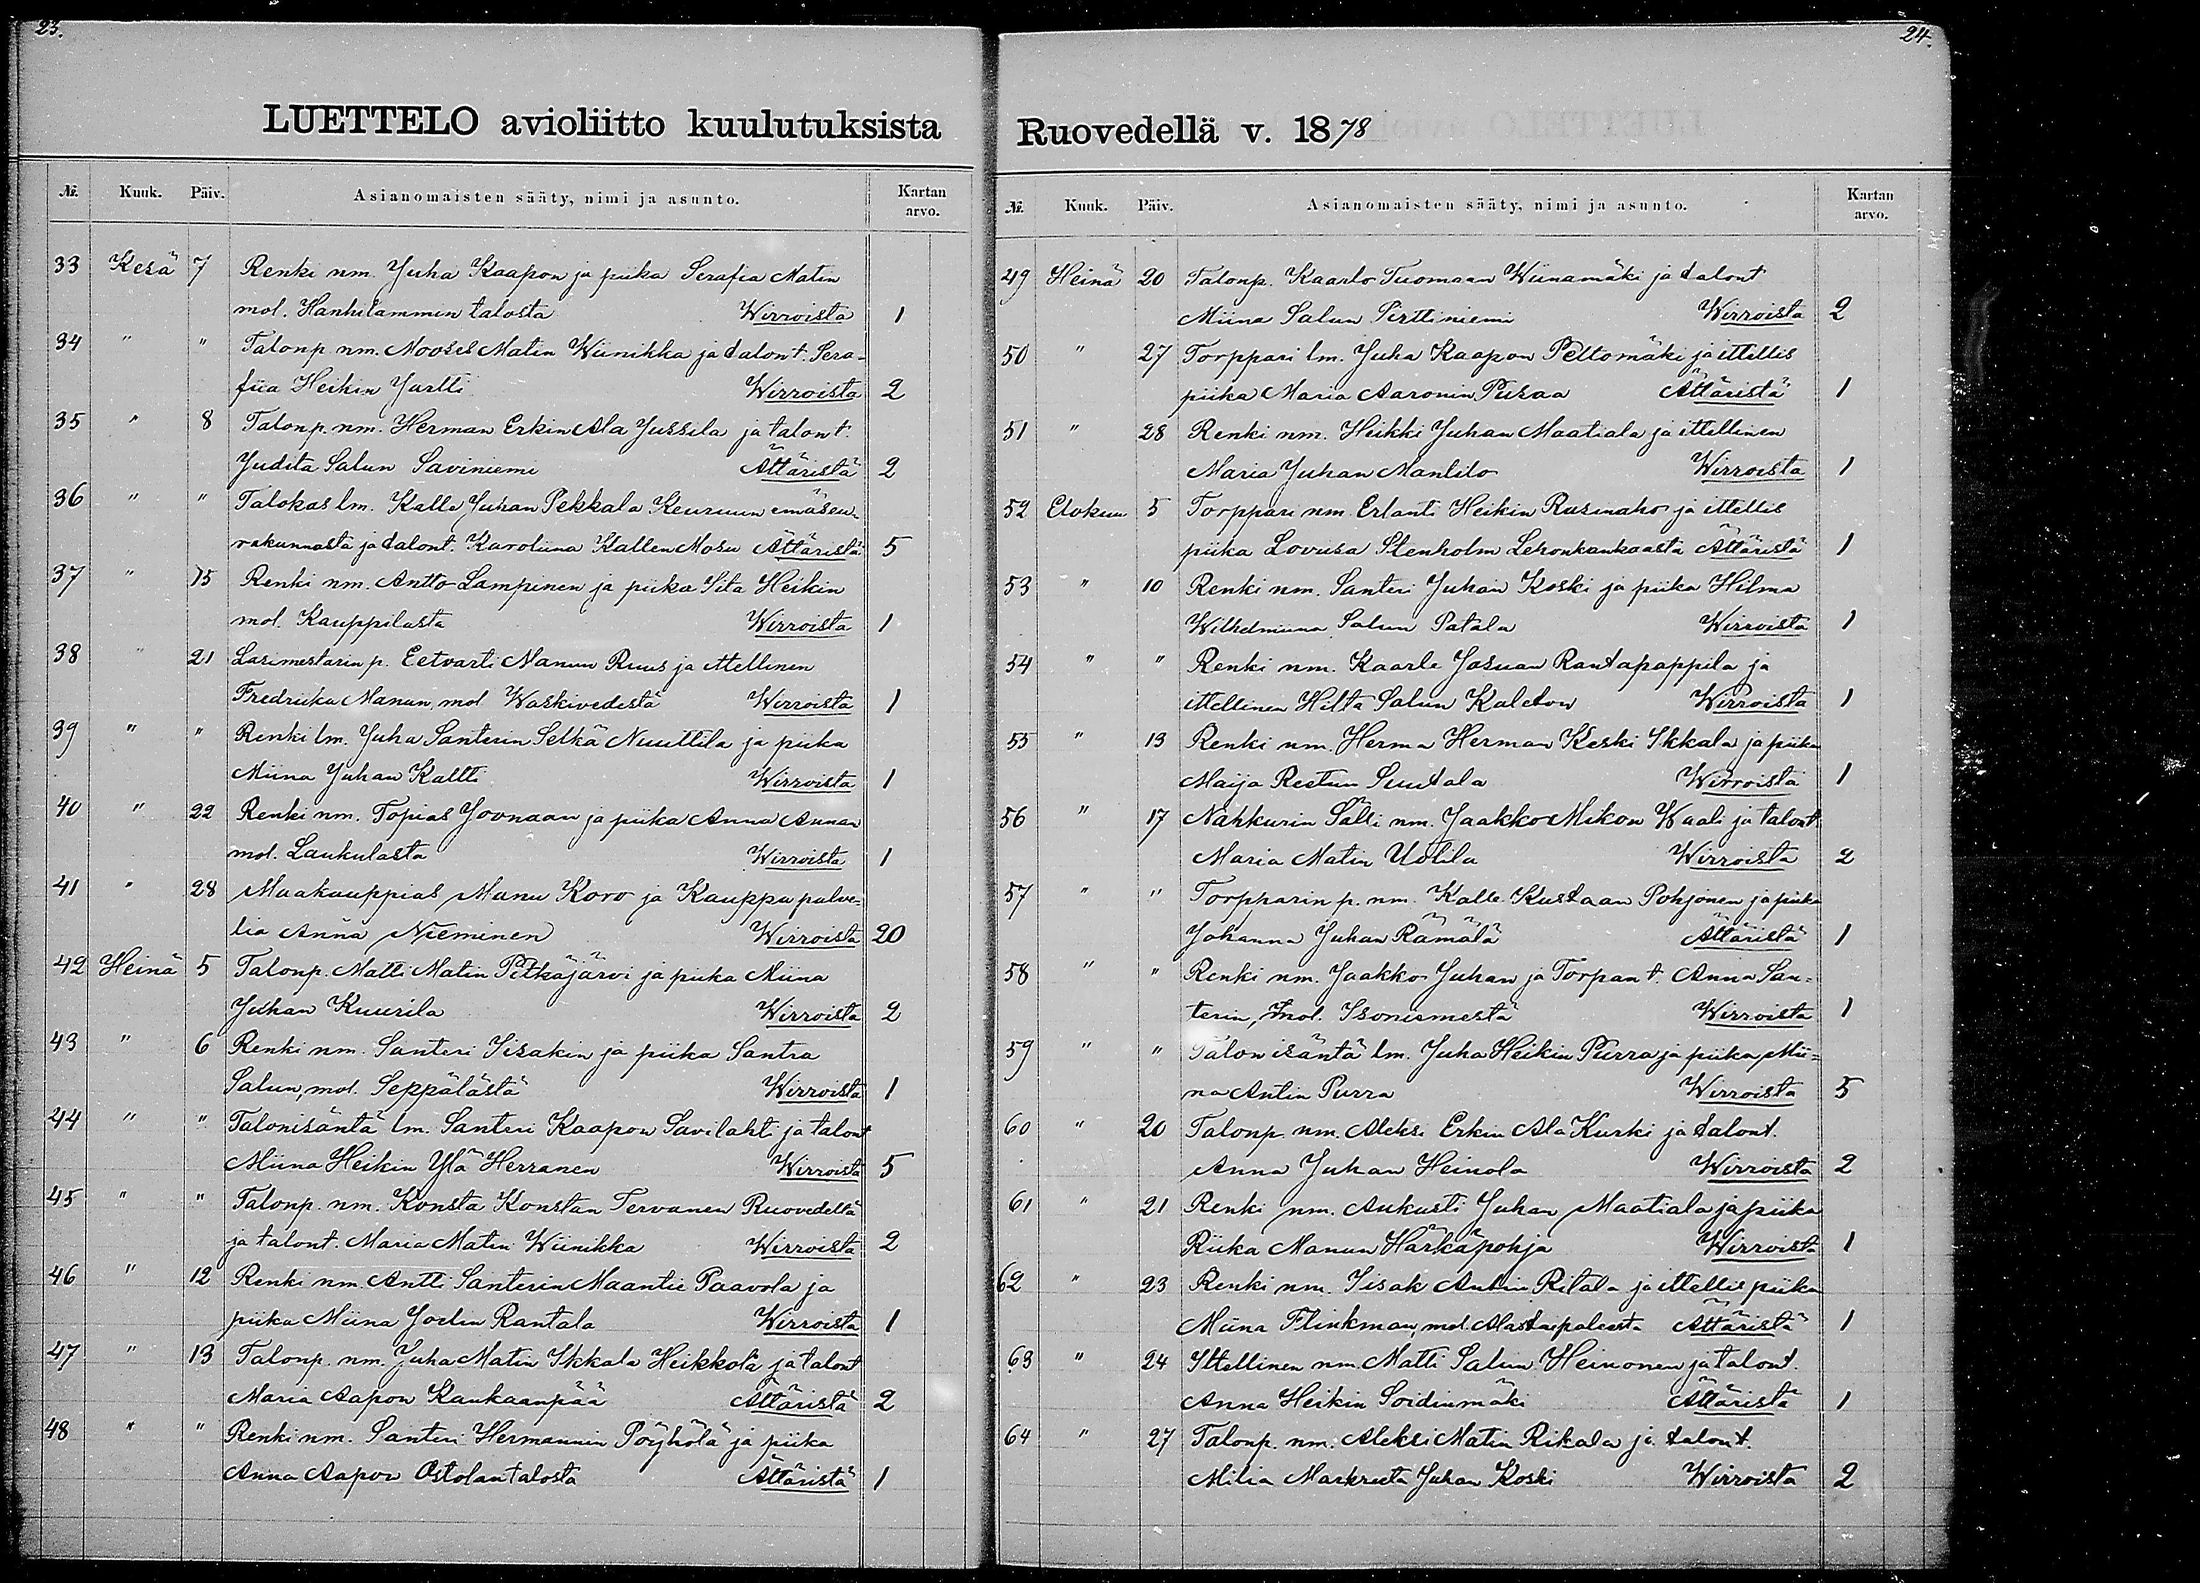 23.
LUETTELO avioliitto kuulutuksista
№. Kuuk. Päiv. Asianomaisten sääty, nimi ja asunto. Kartan arvo.
33 Kesä 7 Renki nm. Juha Kaapon ja piika Serafia Matin
mol. Hanhilammin talosta Wirroista 1
34 " " Talonp nm. Mooses Matin Wiinikka ja talont. Sera-
fiia Heikin Jartti Wirroista 2
35 " 8 Talonp. nm. Herman Erkin Ala Jussila ja talont.
Judita Salun Saviniemi Ättäristä 2
36 " " Talokas lm. Kalle Juhan Pekkala Keuruun emäseu-
rakunnasta ja talont. Karoliina Kallen Mosu Ättäristä 5
37 " 15 Renki nm. Antto Lampinen ja piika Iita Heikin
mol. Kauppilasta Wirroista 1
38 " 21 Lasimestarin p. Eetvarti Manun Ruus ja ittellinen
Fredriika Manun, mol Waskivedestä Wirroista 1
39 " " Renki lm. Juha Santerin Selkä Nuuttila ja piika
Miina Juhan Kaltti Wirroista 1
40 " 22 Renki nm. Topias Joonaan ja piika Anna Annan
mol. Laukulasta Wirroista 1
41 " 28 Maakauppias Manu Koro ja Kauppapalve-
lia Anna Nieminen Wirroista 20
42 Heinä 5 Talonp. Matti Matin Pitkäjärvi ja piika Miina
Juhan Kuurila Wirroista 2
43 " 6 Renki nm. Santeri Iisakin ja piika Santra
Salun, mol. Seppälästä Wirroista 1
44 " " Talonisäntä lm. Santeri Kaapon Savilahti ja talont
Miina Heikin Ylä Herranen Wirroista 5
45 " " Talonp. nm. Konsta Konstan Tervanen Ruovedeltä
ja talont. Maria Matin Wiinikka Wirroista 2
46 " 12 Renki nm Antti Santerin Maantie Paavola ja
piika Miina Joelin Rantala Wirroista 1
47 " 13 Talonp. nm. Juha Matin Ikkala Heikkolä ja talont
Maria Aapon Kankaanpää Ättäristä 2
48 " " Renki nm. Santeri Hermannin Pöyhölä ja piika
Anna Aapon Ostolan talosta Ättäristä 1
24.
Ruovedellä v. 1878
№. Kuuk. Päiv. Asianomaisten sääty, nimi ja asunto. Kartan arvo.
49 Heinä 20 Talonp. Kaarlo Tuomaan Wiinamäki ja talont
Miina Salun Pirttiniemi Wirroista 2
50 " 27 Torppari lm. Juha Kaapon Peltomäki ja ittellis
piika Maria Aaronin Pusaa Ättäristä 1
51 " 28 Renki nm. Heikki Juhan Maatiala ja ittellinen
Maria Juhan Mantilo Wirroista 1
52 Elokuu 5 Torppari nm. Erlanti Heikin Rusinaho ja ittellis
piika Lovusa Stenholm Lehonkankaasta Ättäristä 1
53 " 10 Renki nm. Santeri Juhan Koski ja piika Hilma
Wilhelmiina Salun Patala Wirroista 1
54 " " Renki nm. Kaarle Josuan Rantapappila ja
ittellinen Hilta Salun Kaleton Wirroista 1
55 " 13 Renki nm. Herma Herman Keski Ikkala ja piika
Maija Restun Suutala Wirroista 1
56 " 17 Nahkurin Sälli nm. Jaakko Mikon Waali ja talont
Maria Matin Uotila Wirroista 2
57 " " Torpparin p. nm. Kalle Kustaan Pohjonen ja piika
Johanna Juhan Rämälä Ättäristä 1
58 " " Renki nm. Jaakko Juhan ja Torpan t. Anna San-
terin, mol. Isoniemestä Wirroista 1
59 " " Talon isäntä lm. Juha Heikin Purra ja piika Mii-
na Antin Purra Wirroista 5
60 " 20 Talonp nm. Aleksi Erkin Ala Kurki ja talont.
Anna Juhan Heinola Wirroista 2
61 " 21 Renki nm. Aukusti Juhan Maatiala ja piika
Riika Manun Härkäpohja Wirroista 1
62 " 23 Renki nm. Iisak Antin Ritala ja ittellis piika
Miina Flinkman, mol. Alastaipaleesta Ättäristä 1
63 " 24 Ittellinen nm. Matti Salun Heinonen ja talont.
Anna Heikin Soidinmäki Ättäristä 1
64 " 27 Talonp. nm. Aleksi Matin Rikala ja talont.
Milia Markreeta Juhan Koski Wirroista 2